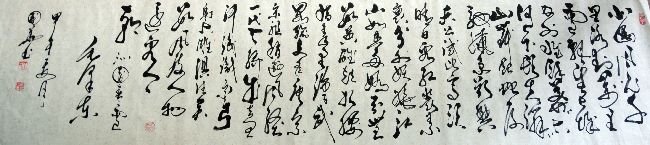 北国风光千
里冰封万里
雪飘望长城
内外惟余莽
莽大河上下
顿失滔滔
山舞银蛇原
驰蜡象欲与
天公试比高须
晴日看红装素
裹分外妖娆江
山如此多娇引无
数英雄竞折腰
惜秦皇汉武
略输文采唐宗
宋祖稍逊风骚
一代天骄成吉
思汗只识弯弓
射大雕俱往矣
数风流人物
还看今
朝 沁园春雪
毛泽东
甲午夏月
书